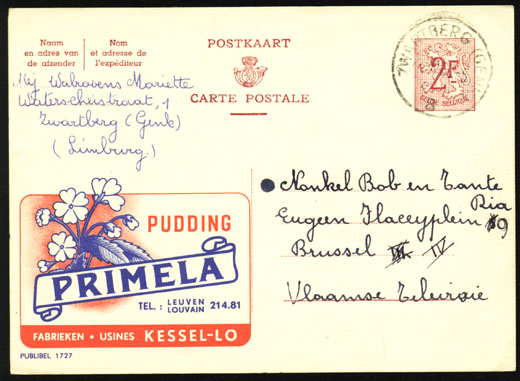 Naam
en adres van
de afzender
Nom
et adresse de
l'expéditeur
POSTKAART
CARTE POSTALE
ZWARTBERG (GENK)
B
2F
BELGIQUE
Mej Walravens Mariette
Waterscheistraat, 1
Zwartberg (Genk)
(Limburg)
Nonkel Bob en Tante
Ria
Eugeen Flaceyplein 19
Brussel III IV
Vlaamse Televisie
PUDDING
PRIMELA
TEL.: LEUVEN
LOUVAIN 214.81
FABRIEKEN • USINES KESSEL-LO
PUBLIBEL 1727